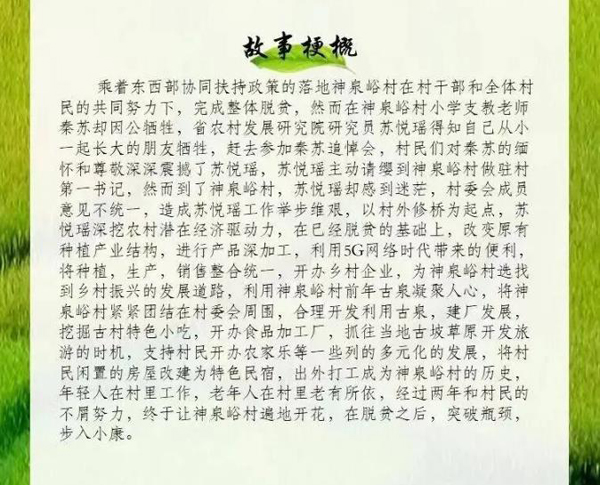 故事梗概
乘着东西部协同扶持政策的落地神泉峪村在村干部和全体村
民的共同努力下，完成整体脱贫，然而在神泉峪村小学支教老师
秦苏却因公牺牲，省农村发展研究院研究员苏悦瑶得知自己从小
一起长大的朋友牺牲，赶去参加秦苏追悼会，村民们对秦苏的缅
怀和尊敬深深震撼了苏悦瑶，苏悦瑶主动请缨到神泉峪村做驻村
第一书记，然而到了神泉峪村，苏悦瑶却感到迷茫，村委会成员
意见不统一，造成苏悦瑶工作举步维艰，以村外修桥为起点，苏
悦瑶深挖农村潜在经济驱动力，在已经脱贫的基础上，改变原有
种植产业结构，进行产品深加工，利用5G网络时代带来的便利，
将种植，生产，销售整合统一，开办乡村企业，为神泉峪村选找
到乡村振兴的发展道路，利用神泉峪村前年古泉凝聚人心，将神
泉峪村紧紧团结在村委会周围，合理开发利用古泉，建厂发展，
挖掘古村特色小吃，开办食品加工厂，抓往当地古坡草原开发旅
游的时机，支持村民开办农家乐等一些列的多元化的发展，将村
民闲置的房屋改建为特色民宿，出外打工成为神泉峪村的历史，
年轻人在村里工作，老年人在村里老有所依，经过两年和村民的
不屑努力，终于让神泉峪村遍地开花，在脱贫之后，突破瓶颈，
步入小康。